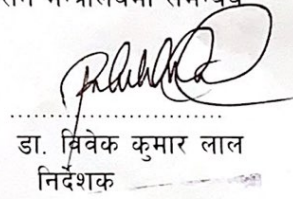 डा. विवेक कुमार लाल
निर्देशक